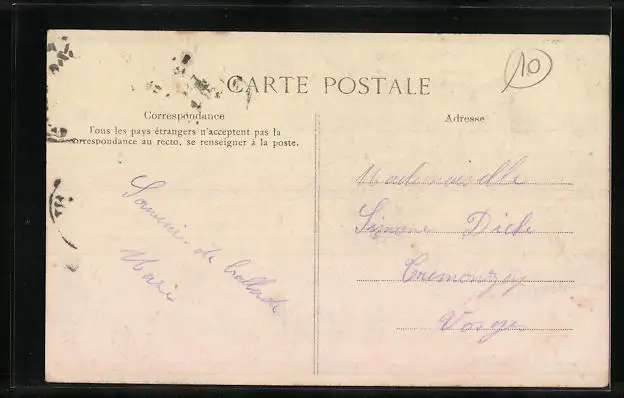 10
CARTE POSTALE
Correspondance
Tous les pays étrangers n'acceptent pas la
correspondance au recto, se renseigner à la poste.
Adresse
Souvenir de ballade
Marie
Mademoiselle
Simone
Vosges